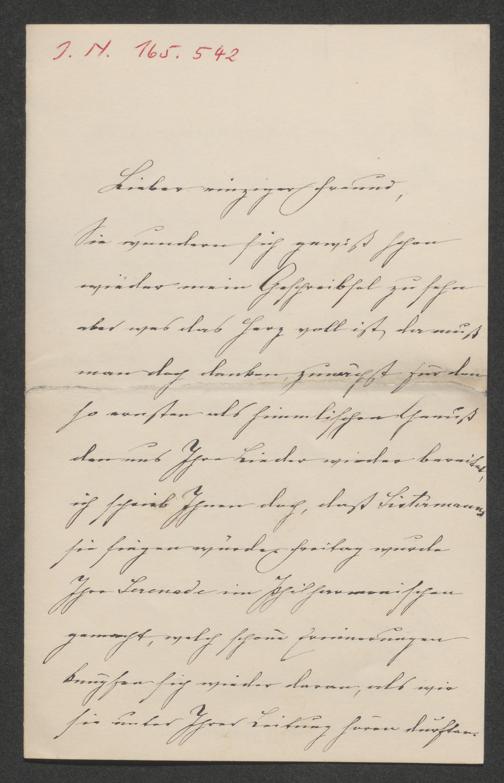 J. N. 165.542
Lieber einziger Freund,
Sie wundern sich gewiß schon
wieder mein Geschreibsel zu sehn
aber wes das Herz voll ist, da muß
man doch danken, zunächst für den
so ernsten als himmlischen Genuß
den uns Ihre Lieder wieder bereitet,
ich schrieb Ihnen doch, daß Sistermanns
sie singen würde, Freitag wurde
Ihre Serenade im Philharmonischen
gemacht, welch schöne Erinnerungen
knüpfen sich wieder daran, als wir
sie unter Ihrer Leitung hören durften.